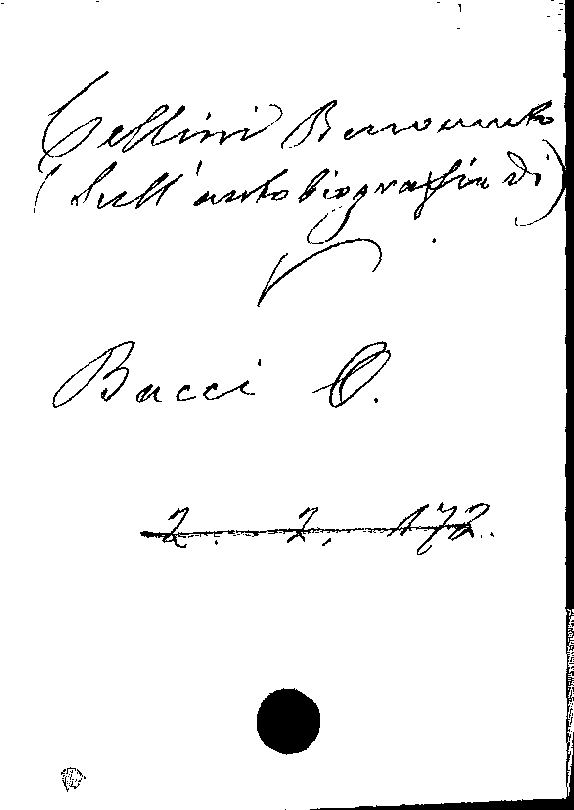 Cellini Benvenuto
(Sull'autobiografia di)
V
Bacci O.
2. 2. 172.